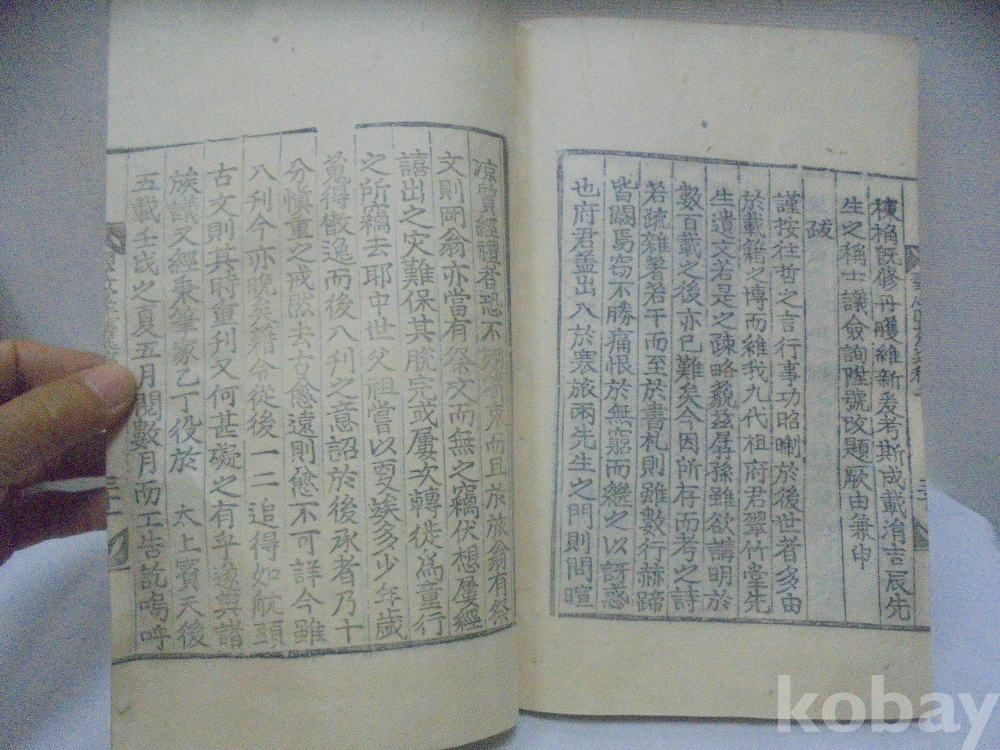 榱桷旣修丹雘維新爰者斯成載消吉辰先
生之稱士議僉詢陞號改題厥由兼印
跋
謹按往哲之言行事功昭晰於後世者多由
於載籍之博而維我九代祖府君翠竹堂先
生遺文若是之疎略藐玆孱孫雖欲講明於
數百載之後亦已難矣今因所存而考之詩
若疏雜著若干而至於書札則雖數行赫蹄
皆闕焉窃不勝痛恨於無窮而繼之以訝惑
也府君盖出入於寒旅兩先生之門則問暄
凉質經禮者恐不 東而且於旅翁有祭
文則岡翁亦當有祭文而無之竊伏想屢經
譆出之灾難保其脫完或屢次轉徙爲童行
之所竊去耶中世父祖嘗以夏竢多少年歲
覓得散逸而後入刊之意詔於後承者乃十
分愼重之戒然去古愈遠則愈不可詳今雖
入刊今亦晩矣籍令從後一二追得如航頭
古文則其時重刊又何甚礙之有乎遂與諸
族議又經秉筆家乙丁役於 太上賓天後
五載壬戌之夏五月閱數月而工告訖嗚呼
kobay